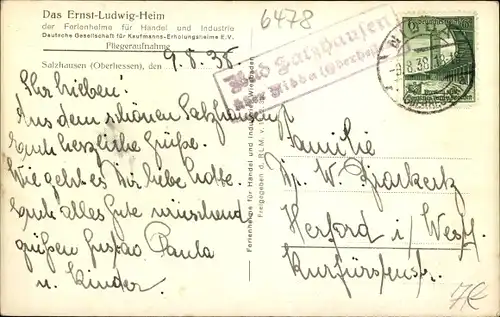 Das Ernst-Ludwig-Heim
der Ferienheime für Handel und Industrie
Deutsche Gesellschaft für Kaufmanns-Erholungsheime E.V.
Fliegeraufnahme
Salzhausen (Oberhessen), den 9.8.38
Ihr Lieben!
Aus dem schönen Salzhausen
Euch herzliche Grüße.
Wie geht es Dir liebe Lotte.
Euch alles Gute wünschend
grüßen Gustav, Paula
u. Kinder.
Ferienheime für Handel und Industrie, Wiesbaden
Freigegeben d. RLM.
6478
Bad Salzhausen
Nidda (Oberhess)
NIDDA
9.8.38.18
Familie
W.
Herford i/Westf.
Kurfürstenstr.